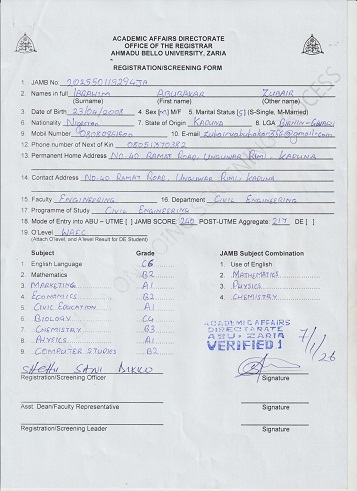 ACADEMIC AFFAIRS DIRECTORATE
OFFICE OF THE REGISTRAR
AHMADU BELLO UNIVERSITY, ZARIA
REGISTRATION/SCREENING FORM
1. JAMB No 202550115294JA
2. Names in full IBRAHIM ABUBAKAR ZUBAIR
(Surname) (First name) (Other name)
3. Date of Birth 23/04/2008 4. Sex [M] M/F 5. Marital Status [S] (S-Single, M-Married)
6. Nationality NIGERIAN 7. State of Origin KADUNA 8. LGA BIRNIN-GWARI
9. Mobil Number 10. E-mail
12. Phone number of Next of Kin 08051370382
13. Permanent Home Address NO. 40 RAMAT ROAD, UNGUWAR RIMI, KADUNA
14. Contact Address NO. 40 RAMAT ROAD, UNGUWAR RIMI, KADUNA
15. Faculty ENGINEERING 16. Department CIVIL ENGINEERING
17. Programme of Study CIVIL ENGINEERING
18. Mode of Entry into ABU - UTME [ ] JAMB SCORE 240 POST-UTME Aggregate 217 DE [ ]
19. O'Level WAEC
(Attach O'level, and A'level Result for DE Student)
Subject Grade JAMB Subject Combination
1. English Language C6 1. Use of English
2. Mathematics B2 2. MATHEMATICS
3. MARKETING A1 3. PHYSICS
4. ECONOMICS B2 4. CHEMISTRY
5. CIVIC EDUCATION A1
6. BIOLOGY C4
7. CHEMISTRY B3
8. PHYSICS A1
9. COMPUTER STUDIES B2
ACADEMIC AFFAIRS
DIRECTORATE
ABU ZARIA
VERIFIED 1
7/1/26
SHEHU SANI DIKKO
Registration/Screening Officer Signature
Asst. Dean/Faculty Representative Signature
Registration/Screening Leader Signature